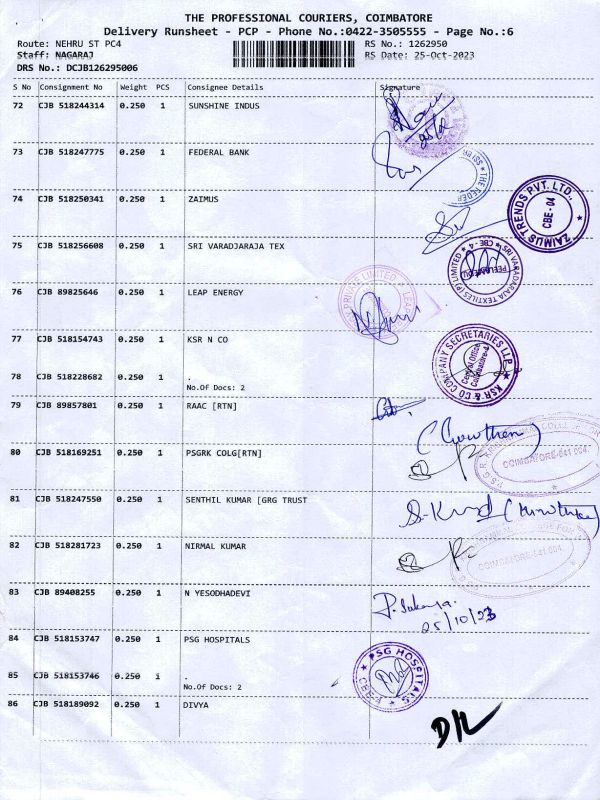 THE PROFESSIONAL COURIERS, COIMBATORE
Delivery Runsheet - PCP - Phone No.:0422-3505555 - Page No.:6
Route: NEHRU ST PC4
RS No.: 1262950
Staff: NAGARAJ
RS Date: 25-Oct-2023
DRS No.: DCJB126295006
S No Consignment No Weight PCS Consignee Details Signature
72 CJB 518244314 0.250 1 SUNSHINE INDUS
73 CJB 518247775 0.250 1 FEDERAL BANK
THE FEDER
74 CJB 518250341 0.250 1 ZAIMUS
ZAIMUS TRENDS PVT. LTD.,
CBE-04
75 CJB 518256608 0.250 1 SRI VARADJARAJA TEX
SRI VARADARAJA TEXTILES (P) LIMITED * CBE-4 *
76 CJB 89825646 0.250 1 LEAP ENERGY
PRIVATE LIMITED
77 CJB 518154743 0.250 1 KSR N CO
KSR & CO COMPANY SECRETARIES LLP
Central Office
Coimbatore-4
78 CJB 518228682 0.250 1 .
No.Of Docs: 2
79 CJB 89857801 0.250 1 RAAC [RTN]
80 CJB 518169251 0.250 1 PSGRK COLG[RTN]
COIMBATORE-641 004.
81 CJB 518247550 0.250 1 SENTHIL KUMAR [GRG TRUST
82 CJB 518281723 0.250 1 NIRMAL KUMAR
COIMBATORE-641 004.
83 CJB 89408255 0.250 1 N YESODHADEVI
25/10/23
84 CJB 518153747 0.250 1 PSG HOSPITALS
PSG HOSPITALS
85 CJB 518153746 0.250 1 .
No.Of Docs: 2
86 CJB 518189092 0.250 1 DIVYA